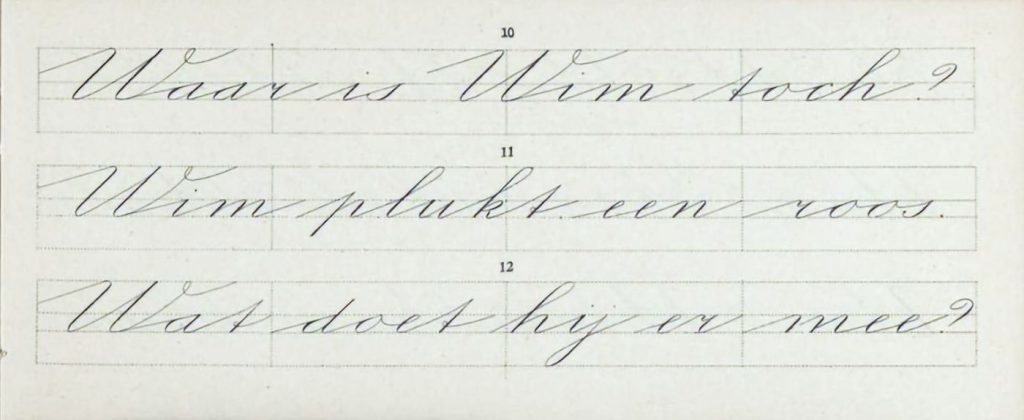 10
Waar is Wim toch?
11
Wim plukt een roos.
12
Wat doet hij er mee?